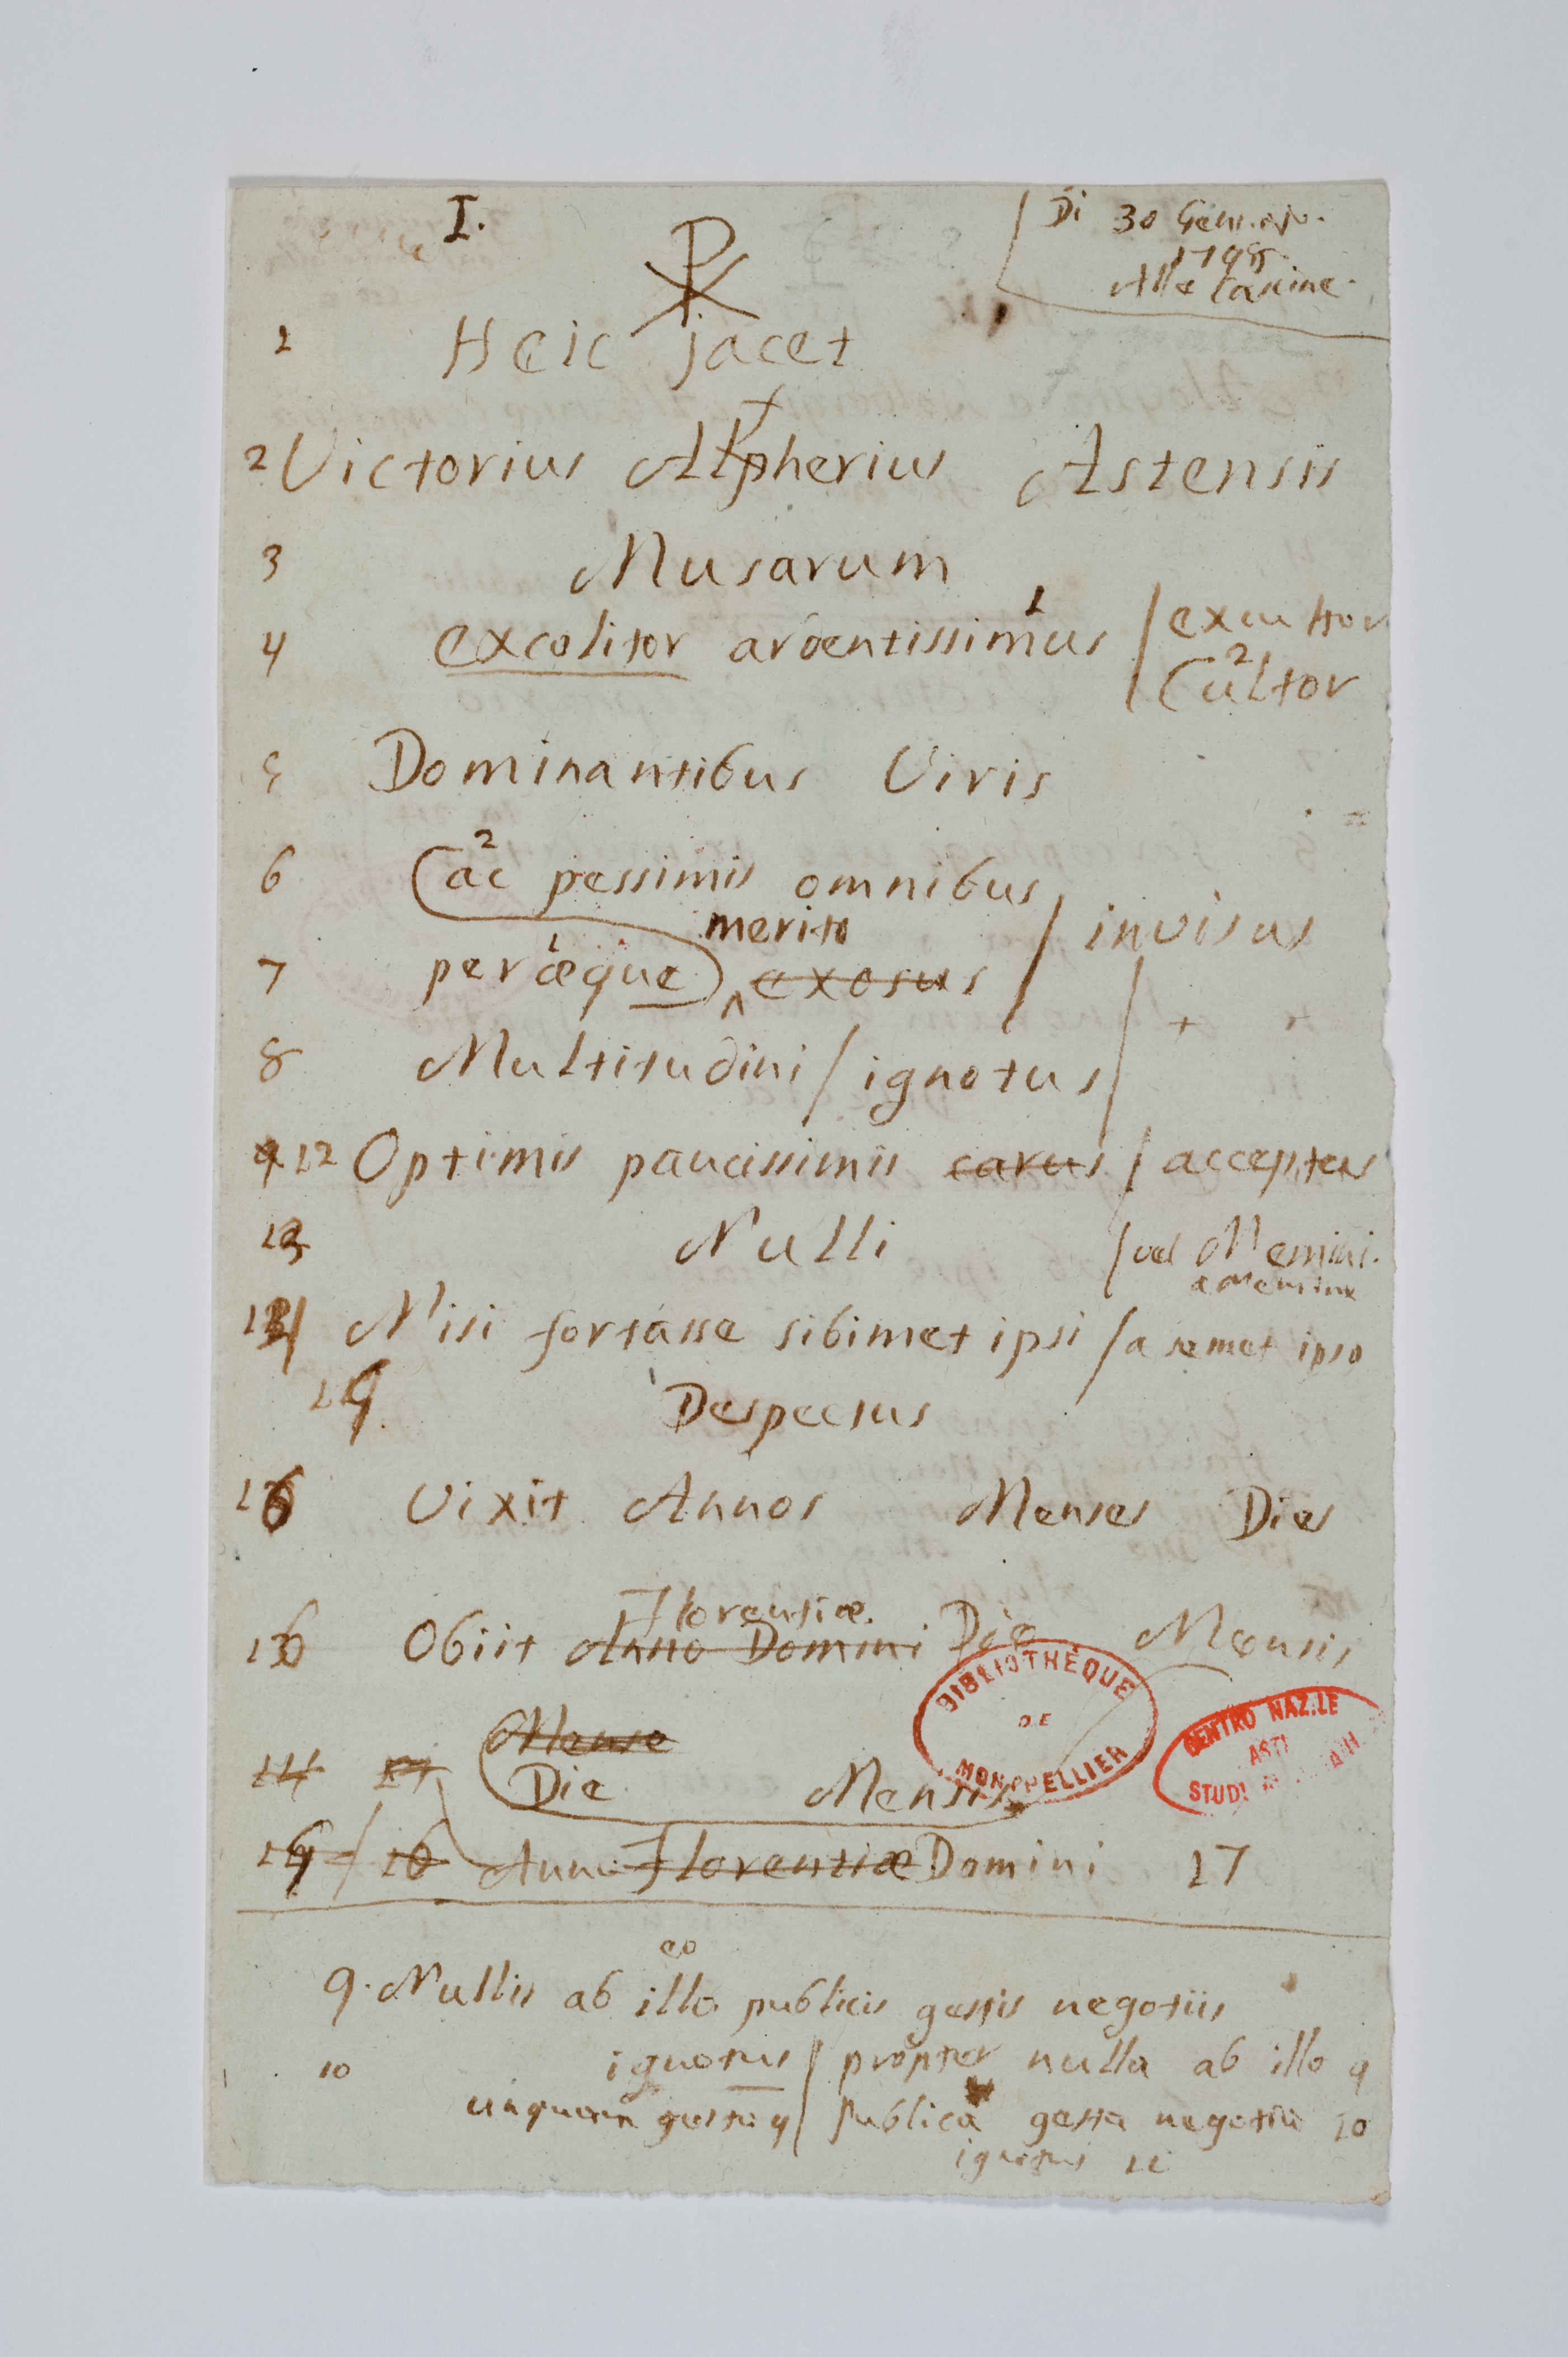 I.
Di 30 Gennajo.
1798.
Alle Cascine.
☧
1 Heic jacet
f
2 Victorius Alpherius Astensis
3 Musarum
4 excolitor ardentissimus 1 / excultor
2 Cultor
5 Dominantibus Viris
6 2 ac pessimis omnibus
merito / invisus
7 1 peræque ^ exosus
8 Multitudini / ignotus / +
9 12 Optimis paucissimis carus / acceptus
13 Nulli / vel Nemini.
a Nemine
14 Nisi fortasse sibimet ipsi / a semet ipso
Despectus
16 Vixit Annos Menses Dies
Florentiæ.
16 Obiit Anno Domini Die Mensis
BIBLIOTHÈQUE
DE
MONTPELLIER
CENTRO NAZ.LE
ASTI
STUDI
Mense
14 Die Mensis
16 Anno Florentiæ Domini 17
eo
9. Nullis ab illo publicis gestis negotiis
10 ignotus / propter nulla ab illo 9
unquam / publica gesta negotia 10
ignotus 11